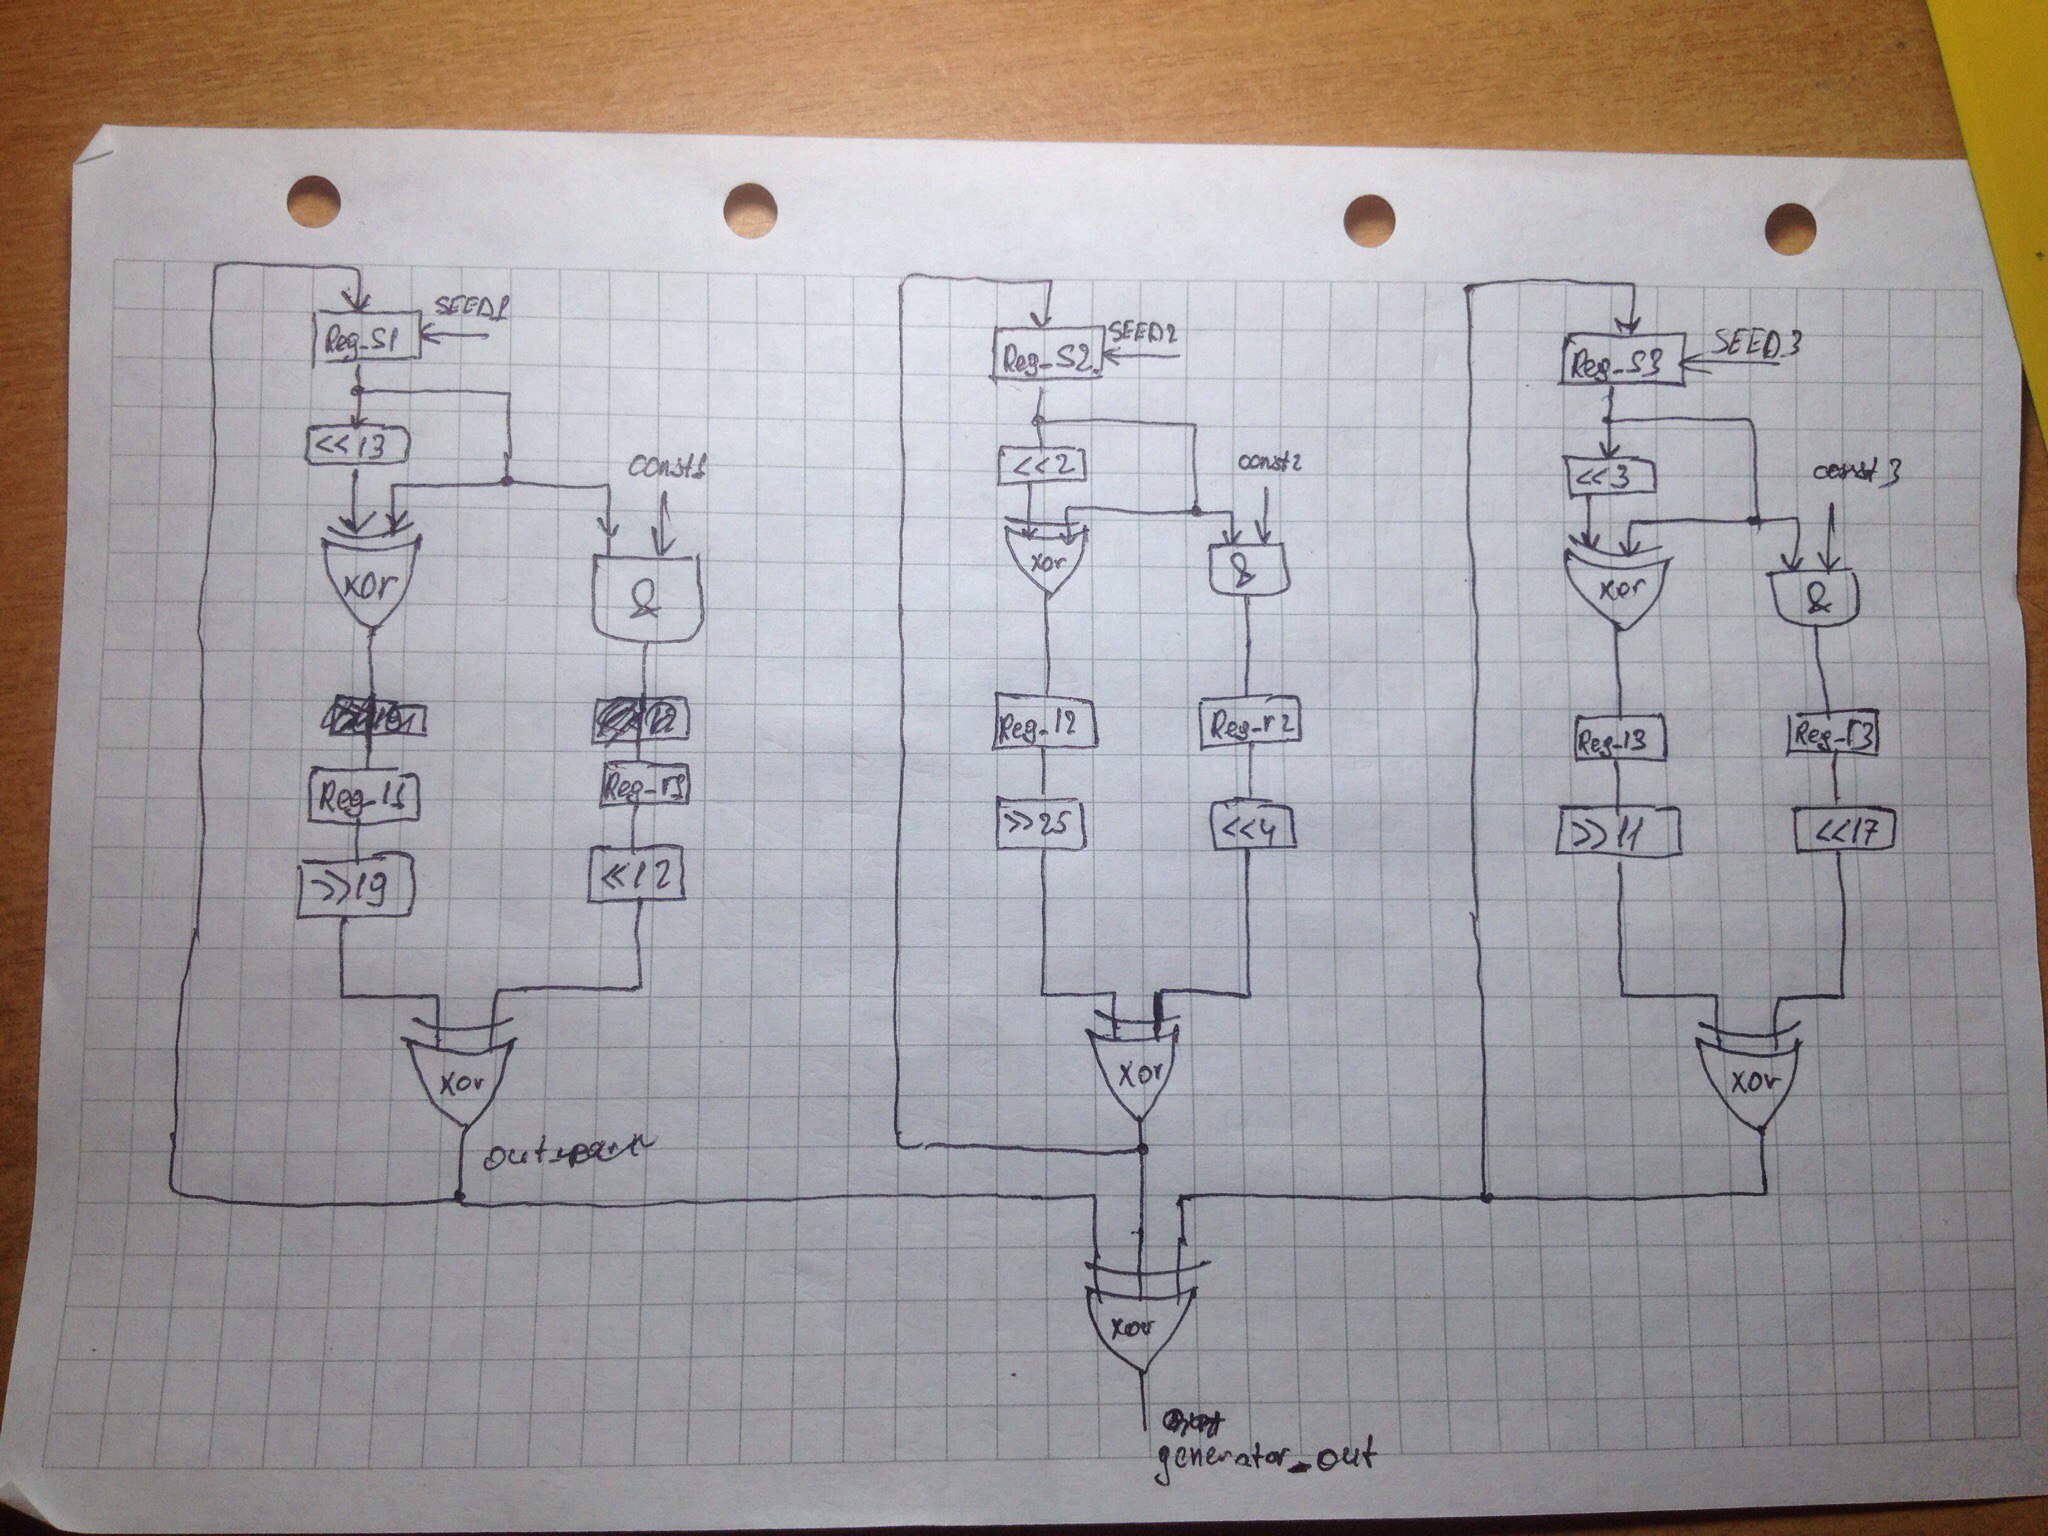 SEED1
Reg_S1
<<13
const1
xor
&
Reg_l1
Reg_r1
>>19
<<12
xor
SEED2
Reg_S2
<<2
const2
xor
&
Reg_l2
Reg_r2
>>25
<<4
xor
SEED3
Reg_S3
<<3
const3
xor
&
Reg_l3
Reg_r3
>>11
<<17
xor
xor
generator_out